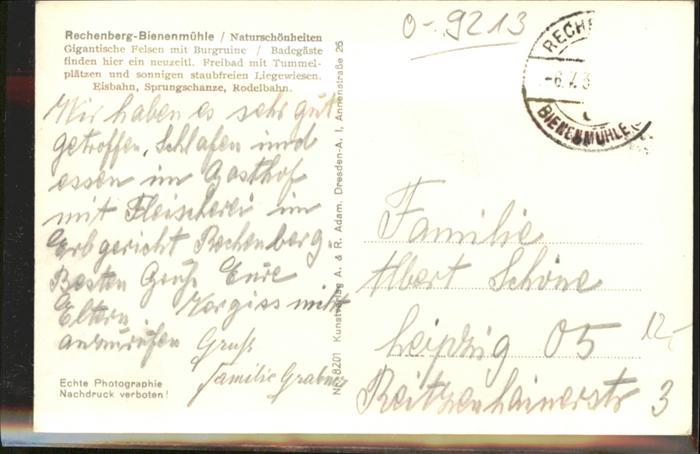 Rechenberg-Bienenmühle / Naturschönheiten
Gigantische Felsen mit Burgruine / Badegäste
finden hier ein neuzeitl. Freibad mit Tummel-
plätzen und sonnigen staubfreien Liegewiesen.
Eisbahn, Sprungschanze, Rodelbahn.
Wir haben es sehr gut
getroffen, Schlafen und
essen im Gasthof
mit Fleischerei im
Erbgericht Rechenberg.
Besten Gruß Eure
Eltern. Vergiss nicht
anzurufen Gruß
Familie
Echte Photographie
Nachdruck verboten!
8201 Kunstverlag A. & R. Adam, Dresden-A. I, Annenstraße 25
0-9213
RECH
-6.7.3
BIENENMÜHLE
Familie
Albert Schöne
Leipzig O5
12,-
Reitzenhainerstr 3